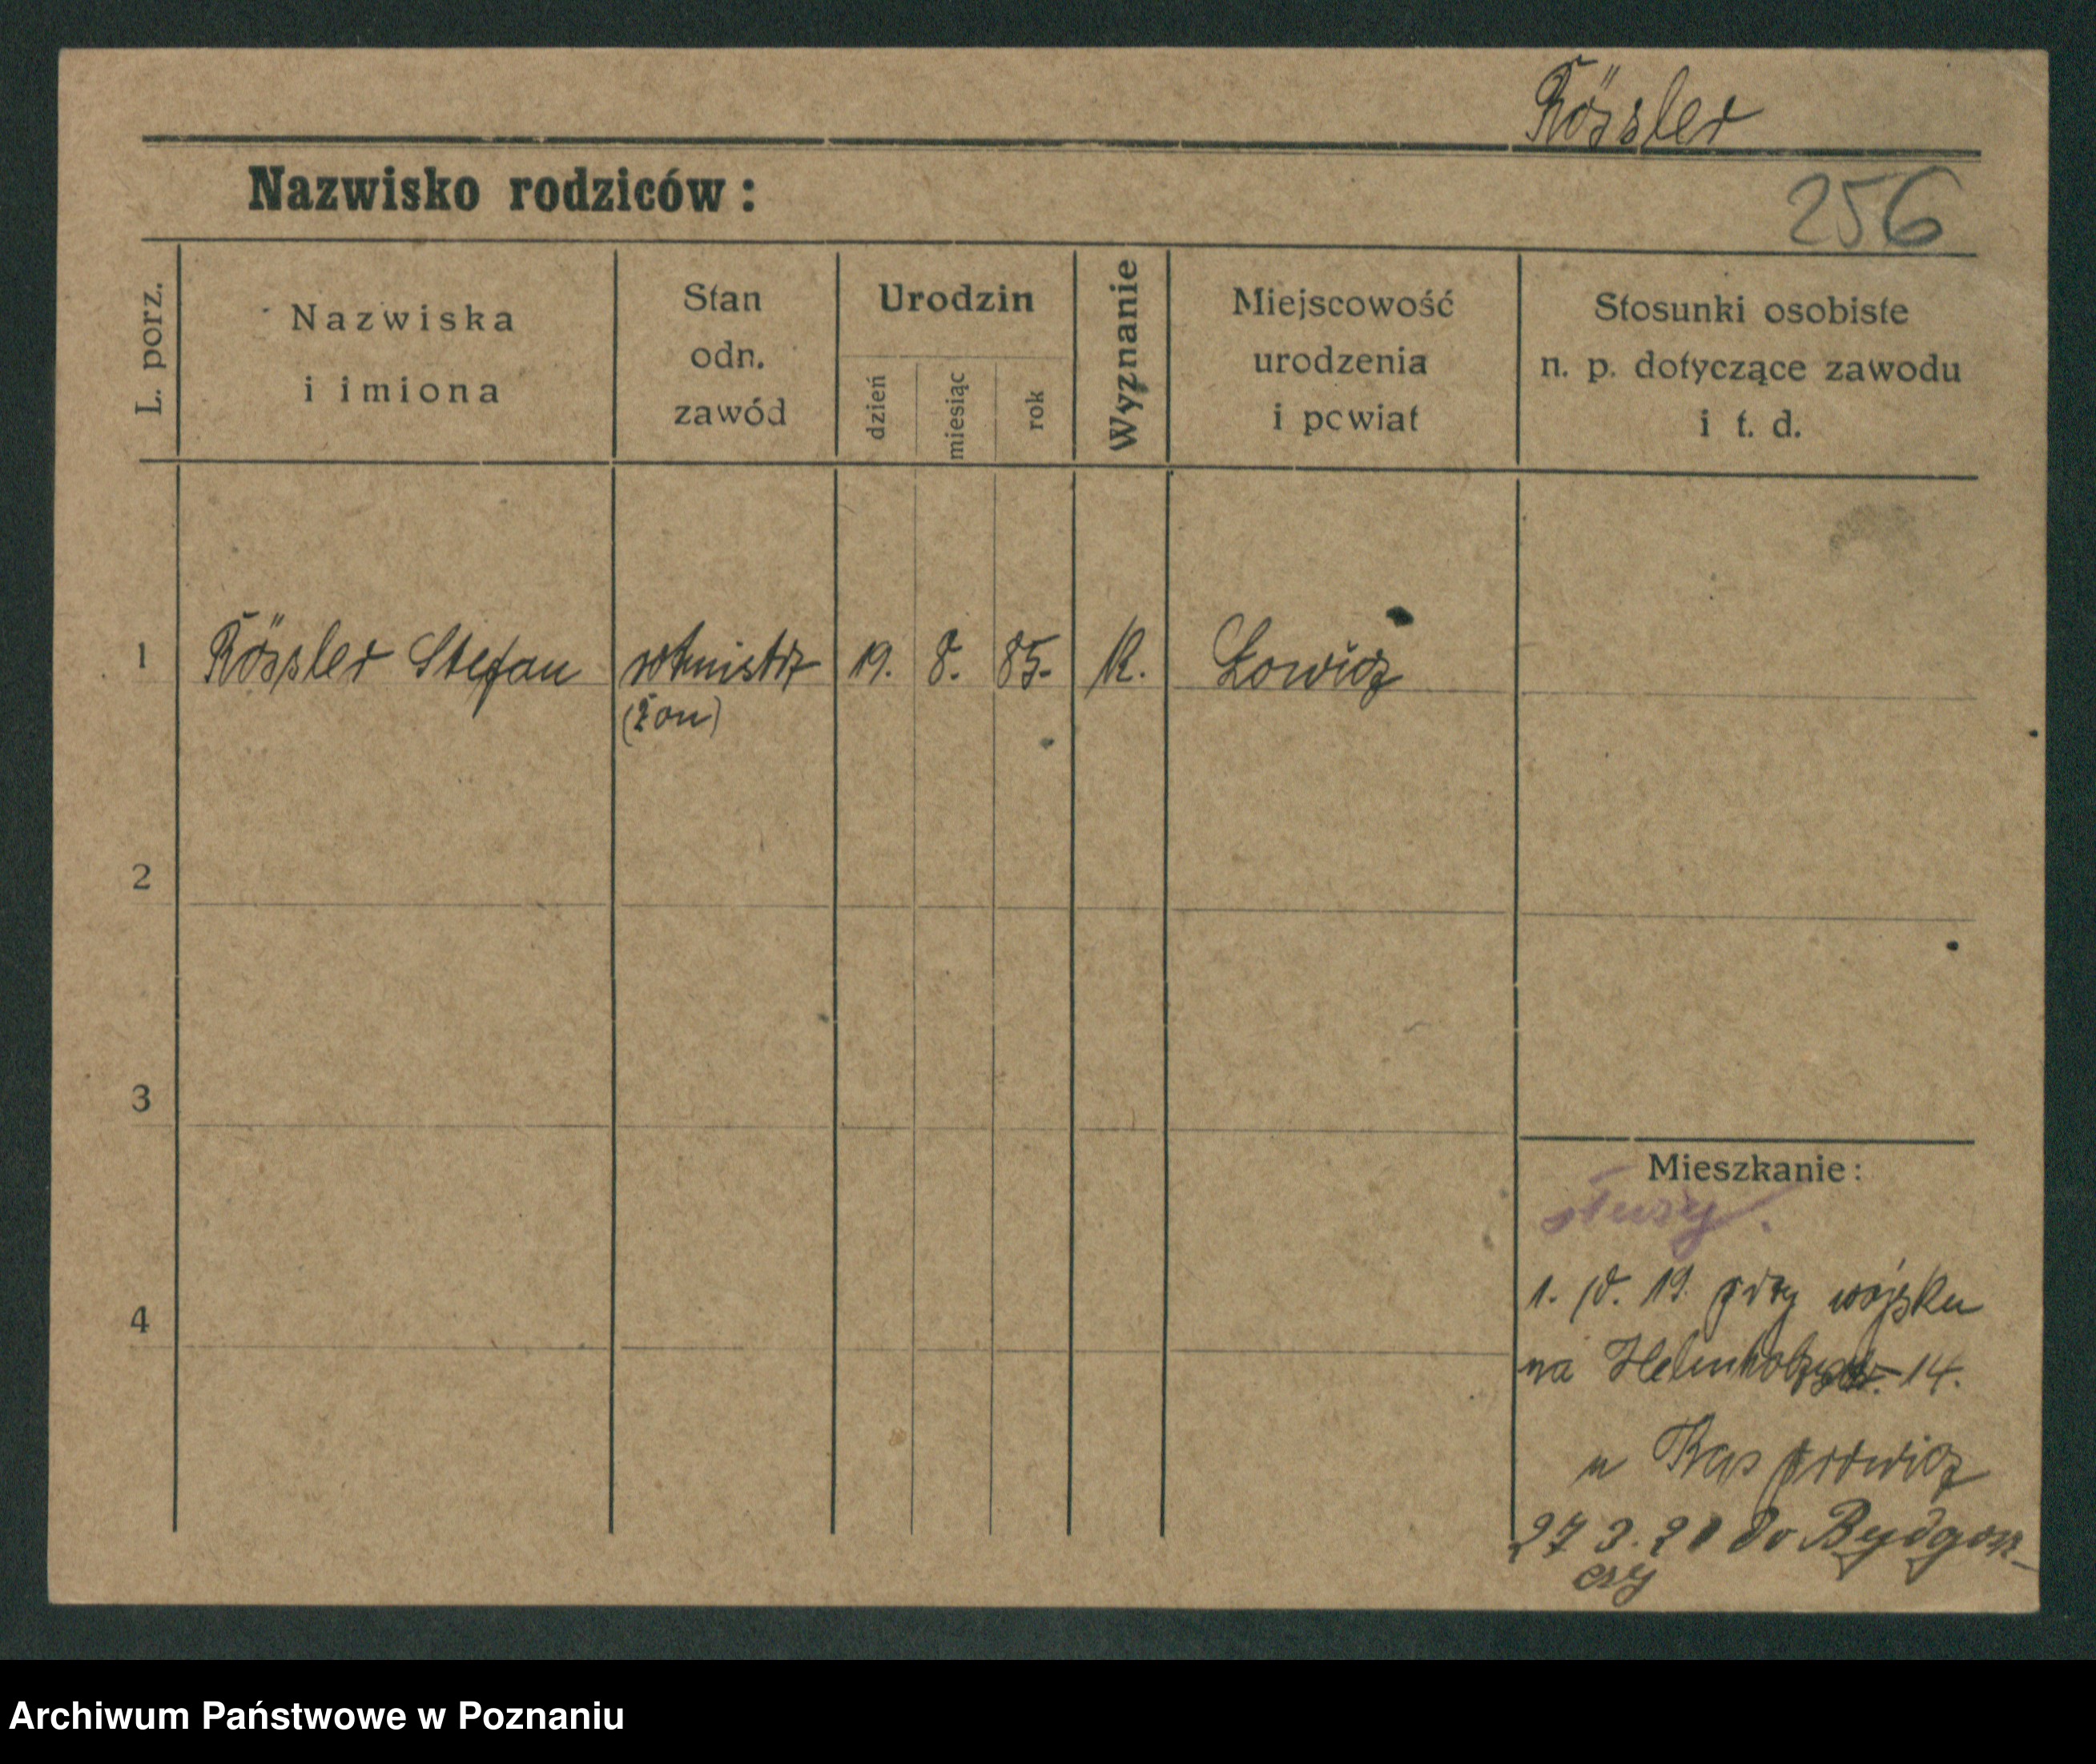 Rössler
Nazwisko rodziców:
256
L. porz.
Nazwiska
i imiona
Stan
odn.
zawód
Urodzin
dzień
miesiąc
rok
Wyznanie
Miejscowość
urodzenia
i powiat
Stosunki osobiste
n. p. dotyczące zawodu
i t. d.
1 Rössler Stefan rotmistrz 19. 8. 85. K. Łowicz
(żon)
2
3
4
Mieszkanie:
służy.
1. 10. 19. przy wojsku
na 14.
u
27 3. 20 do Bydgosz-
czy
Archiwum Państwowe w Poznaniu